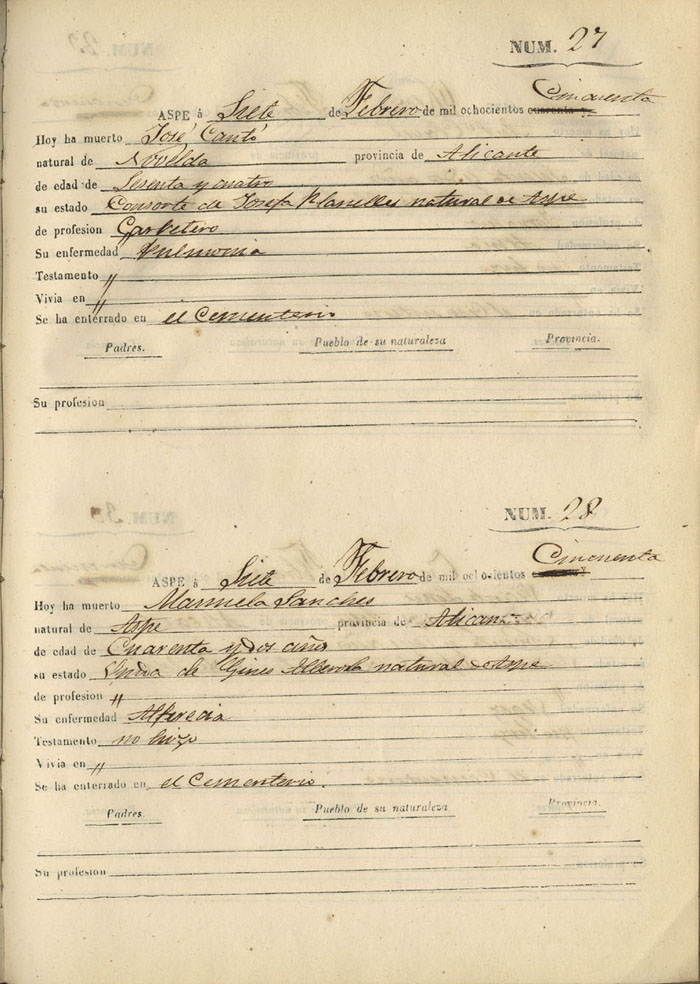 NUM. 27
ASPE á Siete de Febrero de mil ochocientos cuarenta y Cincuenta
Hoy ha muerto José Cantó
natural de Novelda provincia de Alicante
de edad de Sesenta y cuatro
su estado Consorte de Josefa Planelles natural de Aspe
de profesion
Su enfermedad Pulmonia
Testamento "
Vivia en "
Se ha enterrado en el Cementerio
Padres. Pueblo de su naturaleza Provincia.
Su profesion
NUM. 28
ASPE á Siete de Febrero de mil ochocientos Cincuenta
Hoy ha muerto Manuela Sanches
natural de Aspe provincia de Alicante
de edad de Cuarenta y dos años
su estado Viuda de Gines Alberola natural de Aspe
de profesion "
Su enfermedad Alferecia
Testamento no hizo
Vivia en "
Se ha enterrado en el Cementerio.
Padres. Pueblo de su naturaleza Provincia.
Su profesion